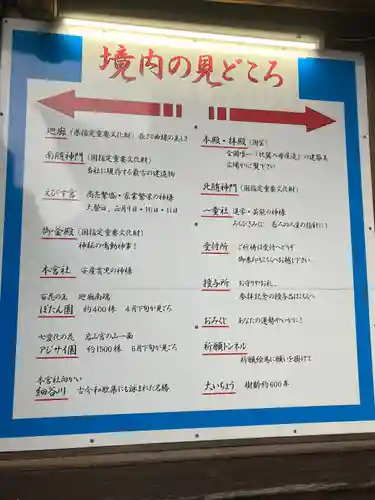 境内の見どころ
廻廊 (県指定重要文化財) 長さと曲線の美しさ
南随神門 (国指定重要文化財)
当社に現存する最古の建造物
えびす宮 商売繁盛・家業繁栄の神様
大祭日、1月9日・10日・11日
御釜殿 (国指定重要文化財)
神秘の鳴動神事!
本宮社 安産育児の神様
百花の王 廻廊南端
ぼたん園 約400株 4月下旬が見ごろ
七変化の花 岩山宮の山一面
アジサイ園 約1500株 6月下旬が見ごろ
本宮社向かい
細谷川 古今和歌集にも詠まれた名勝
本殿・拝殿 (国宝)
全国唯一「比翼入母屋造」の建築美
広場からご覧下さい
北随神門 (国指定重要文化財)
一童社 進学・芸能の神様
みくじ 吾人の人生の指針に!
受付所 ご祈祷は受付へどうぞ
御朱印もこちらへお越し下さい。
授与所 お守りやお札、
参拝記念の授与品はこちらへ
おみくじ あなたの運勢やいかに!
祈願トンネル
祈願絵馬に願いを掛けて
大いちょう 樹齢約600年